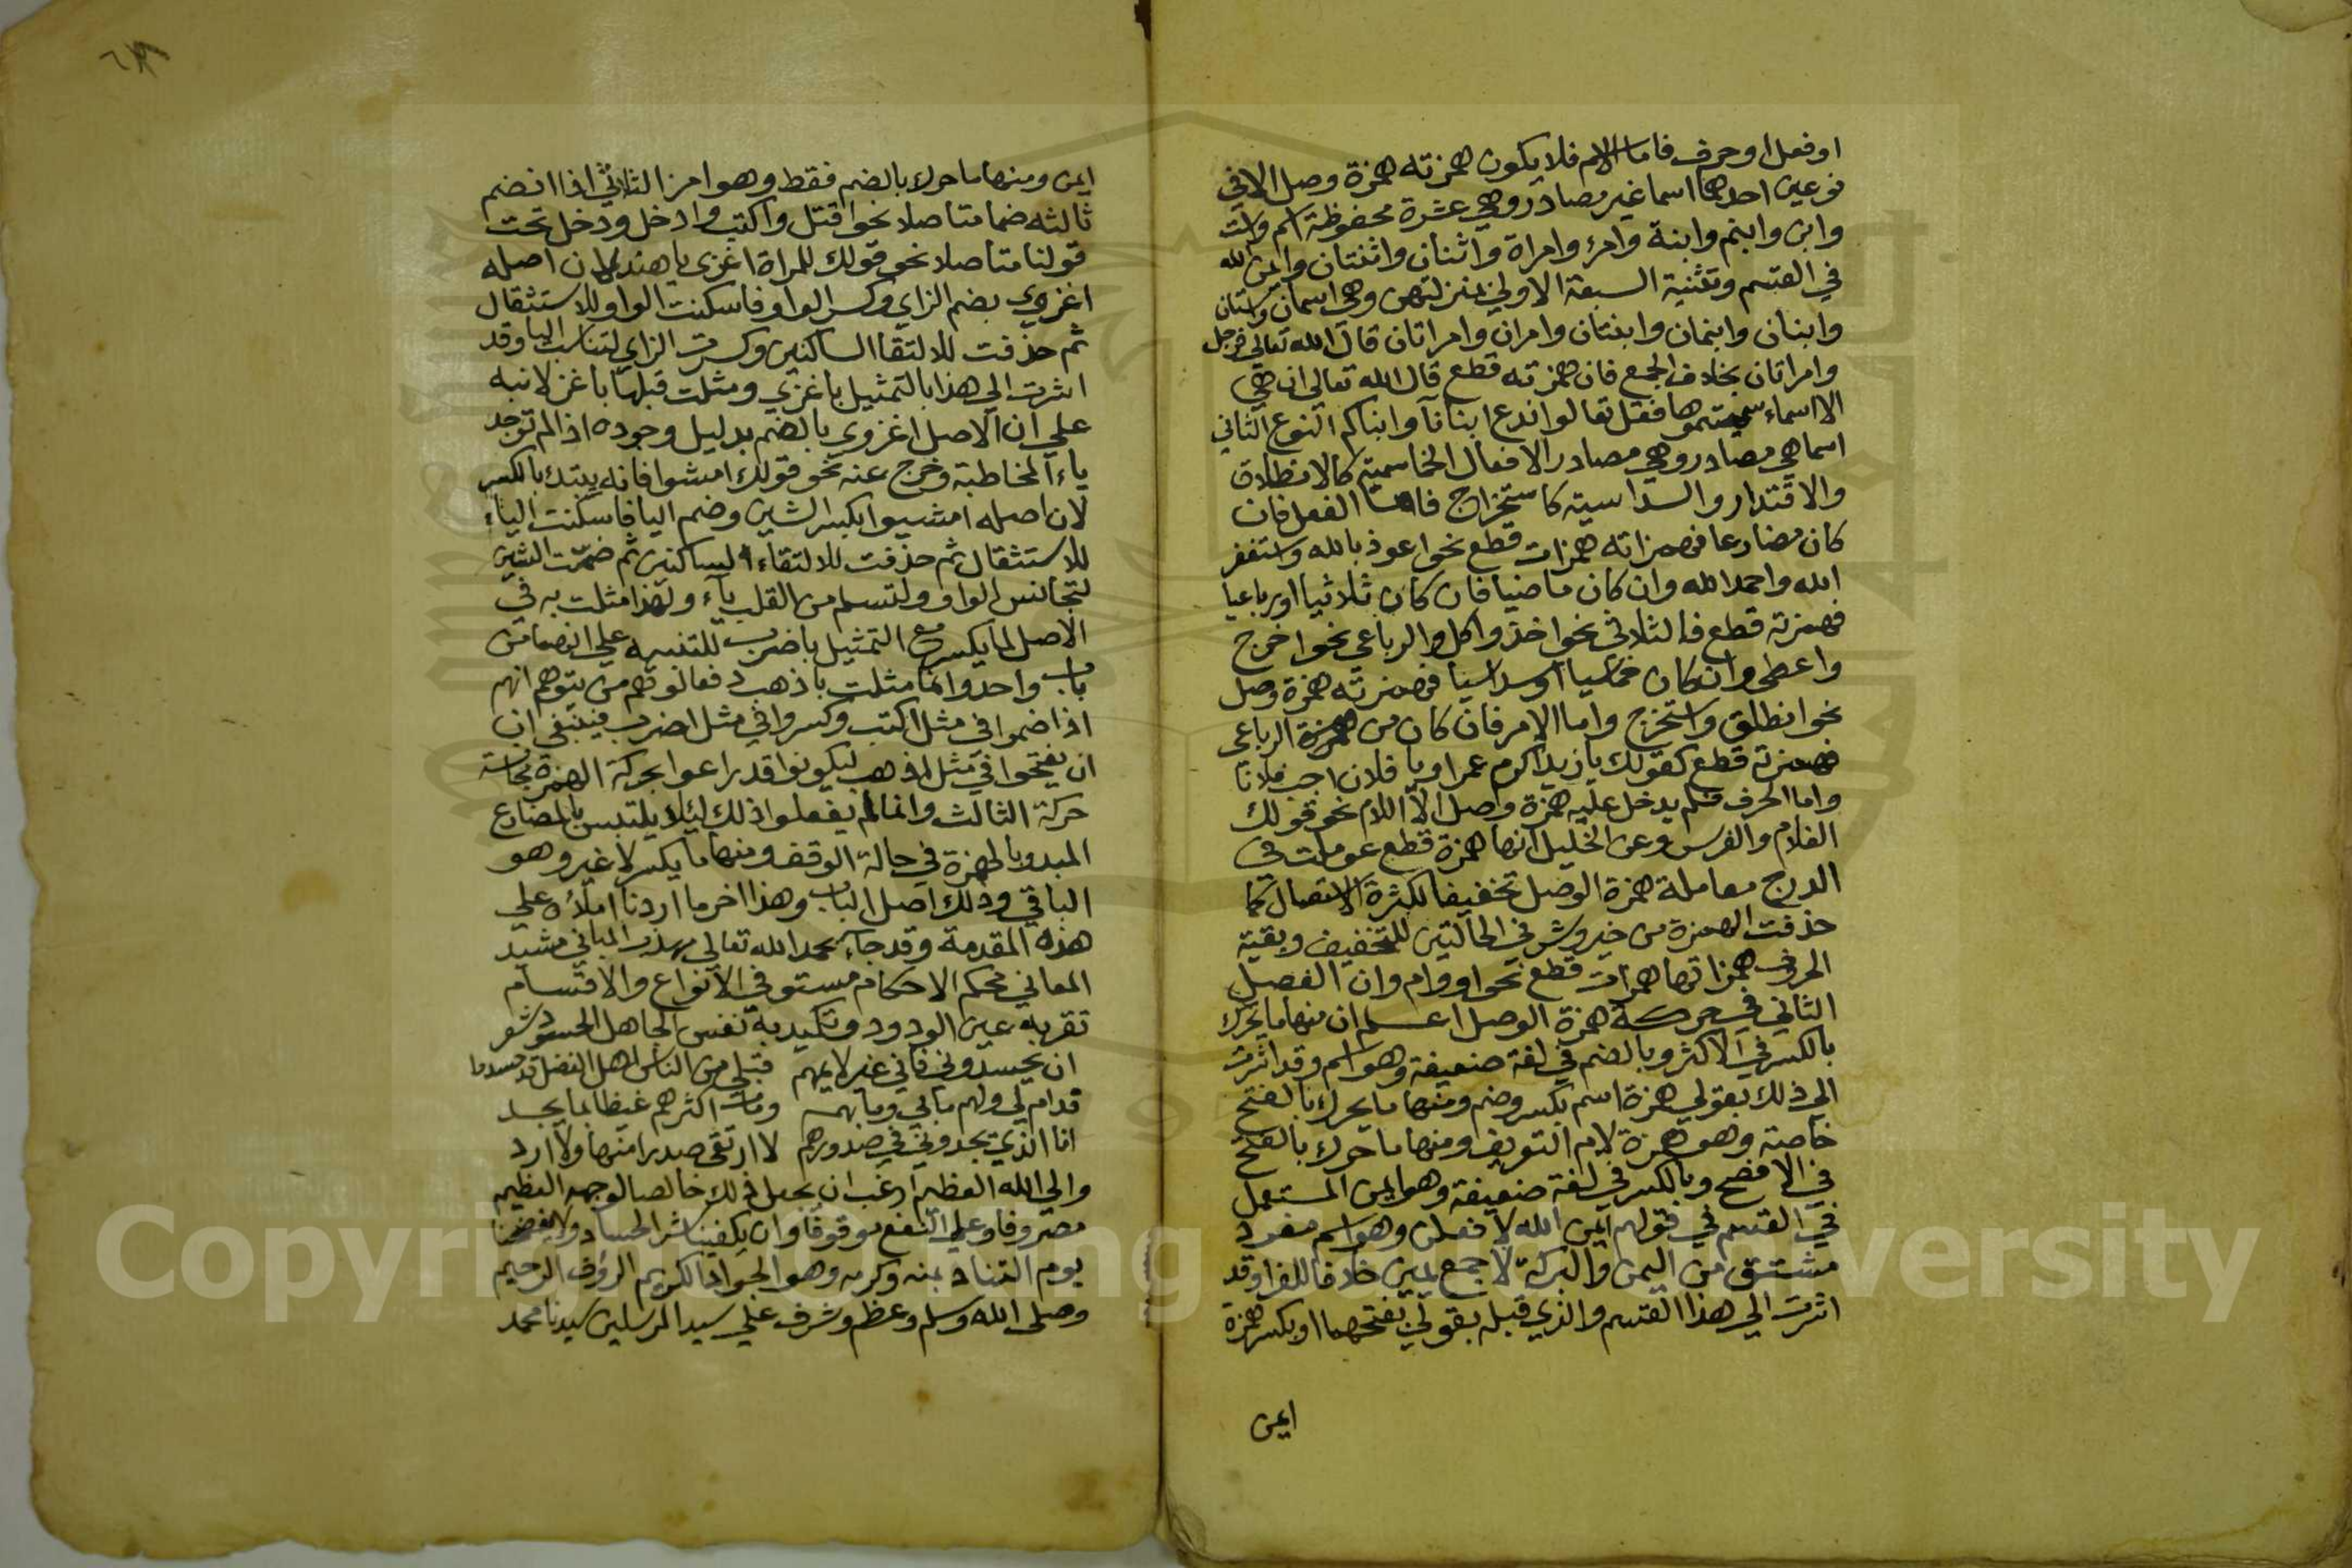 اوفعل اوحرف فاما الاسم فلا يكون همزته همزة وصل الا في
نوعين احدهما اسما غير مصادر وهي عشرة محفوظة اسم واست
وابن وابنم وابنة وامرؤ وامراة واثنان واثنتان وايمن الله
في القسم وتثنية السبعة الاولي بمنزلتهن وهي اسمان واستان
وابنان وابنمان وابنتان وامران وامراتان قال الله تعالي فرجل
وامراتان بخلاف الجمع فان همزته قطع قال الله تعالي ان هي
الا اسماء سميتموها فقل تعالوا ندع ابنانا وابناكم النوع الثاني
اسما هي مصادر وهي مصادر الافعال الخماسية كالانطلاق
والاقتدار والسداسية كاستخراج فاما الفعل فان
كان مضارعا فهمزاته همزات قطع نحو اعوذ بالله واستغفر
الله واحمد الله وان كان ماضيا فان كان ثلاثيا او رباعيا
فهمزته قطع فالثلاثي نحو اخذ واكل والرباعي نحو اخرج
واعطي وان كان خماسيا او سداسيا فهمزته همزة وصل
نحو انطلق واستخرج واما الامر فان كان من همزة الرباعي
فهمزته قطع كقولك يا زيد اكرم عمرا ويا فلان اجب فلانا
واما الحرف فلم يدخل عليه همزة وصل الا اللام نحو قولك
الغلام والفرس وعن الخليل انها همزة قطع عوملت في
الدرج معاملة همزة الوصل تخفيفا لكثرة الاستعمال كما
حذفت الهمزة من خير وشر في الحالتين للتخفيف وبقية
الحروف همزاتها همزات قطع نحو او وام وان الفصل
الثاني في حركة همزة الوصل اعلم ان منها ما يحرك
بالكسر في الاكثر وبالضم في لغة ضعيفة وهو اسم وقد اشرت
الي ذلك بقولي همزة اسم بكسر وضم ومنها ما يحرك بالفتح
خاصة وهو همزة لام التعريف ومنها ما حرك بالفتح
في الافصح وبالكسر في لغة ضعيفة وهو ايمن المستعمل
في القسم في قولهم ايمن الله لا فعلن وهو اسم مفرد
مشتق من اليمن والبركة لا جمع يمين خلافا للفرا وقد
اشرت الي هذا القسم والذي قبله بقولي بفتحهما او بكسر همزة
ايمن
ايمن ومنها ما حرك بالضم فقط وهو امر الثلاثي اذا انضم
ثالثه ضما متاصلا نحو اقتل واكتب وادخل ودخل تحت
قولنا متاصلا نحو قولك للمراة اغزي يا هند لان اصله
اغزوي بضم الزاي وكسر الواو فاسكنت الواو للاستثقال
ثم حذفت للالتقا الساكنين وكسرت الزاي لتناسب اليا وقد
اشرت الي هذا بالتمثيل باغزي ومثلت قبلها باغز لانبه
علي ان الاصل اغزوي بالضم بدليل وجوده اذا لم توجد
ياء المخاطبة وخرج عنه نحو قولك امشوا فانه يبتدا بالكسر
لان اصله امشيوا بكسر الشين وضم اليا فاسكنت الياء
للاستثقال ثم حذفت للالتقاء الساكنين ثم ضمت الشين
لتجانس الواو ولتسلم من القلب ياء ولهذا مثلت به في
الاصل لما يكسر مع التمثيل باضرب للتنبيه علي انهما من
باب واحد وانما مثلت باذهب دفعا لوهم من يتوهم انهم
اذا ضموا في مثل اكتب وكسروا في مثل اضرب فينبغي ان
ان يفتحوا في مثل اذهب ليكونوا قد راعوا بحركة الهمزة مجانسة
حركة الثالث وانما لم يفعلوا ذلك لئلا يلتبس بالمضارع
المبدو بالهمزة في حالة الوقف ومنها ما يكسر لا غير وهو
الباقي وذلك اصل الباب وهذا اخر ما اردنا املاؤه علي
هذه المقدمة وقد جاء بحمد الله تعالي مهذب المباني مشيد
المعاني محكم الاحكام مستوفي الانواع والاقسام
تقر به عين الودود وتكيد به نفس الجاهل الحسود شعر
ان يحسدوني فاني غير لايمهم قبلي من الناس اهل الفضل قد حسدوا
فدام لي ولهم ما بي وما بهم ومات اكثرهم غيظا بما يجد
انا الذي يجدوني في صدورهم لا ارتقي صدرا منها ولا ارد
والي الله العظيم ارغب ان يجعل ذلك خالصا لوجهه العظيم
مصروفا وعلي النفع موقوفا وان يكفينا شر الحساد ولا يفضحنا
يوم التناد بمنه وكرمه وهو الجواد الكريم الرؤف الرحيم
وصلي الله وسلم وعظم وشرف علي سيد المرسلين سيدنا محمد